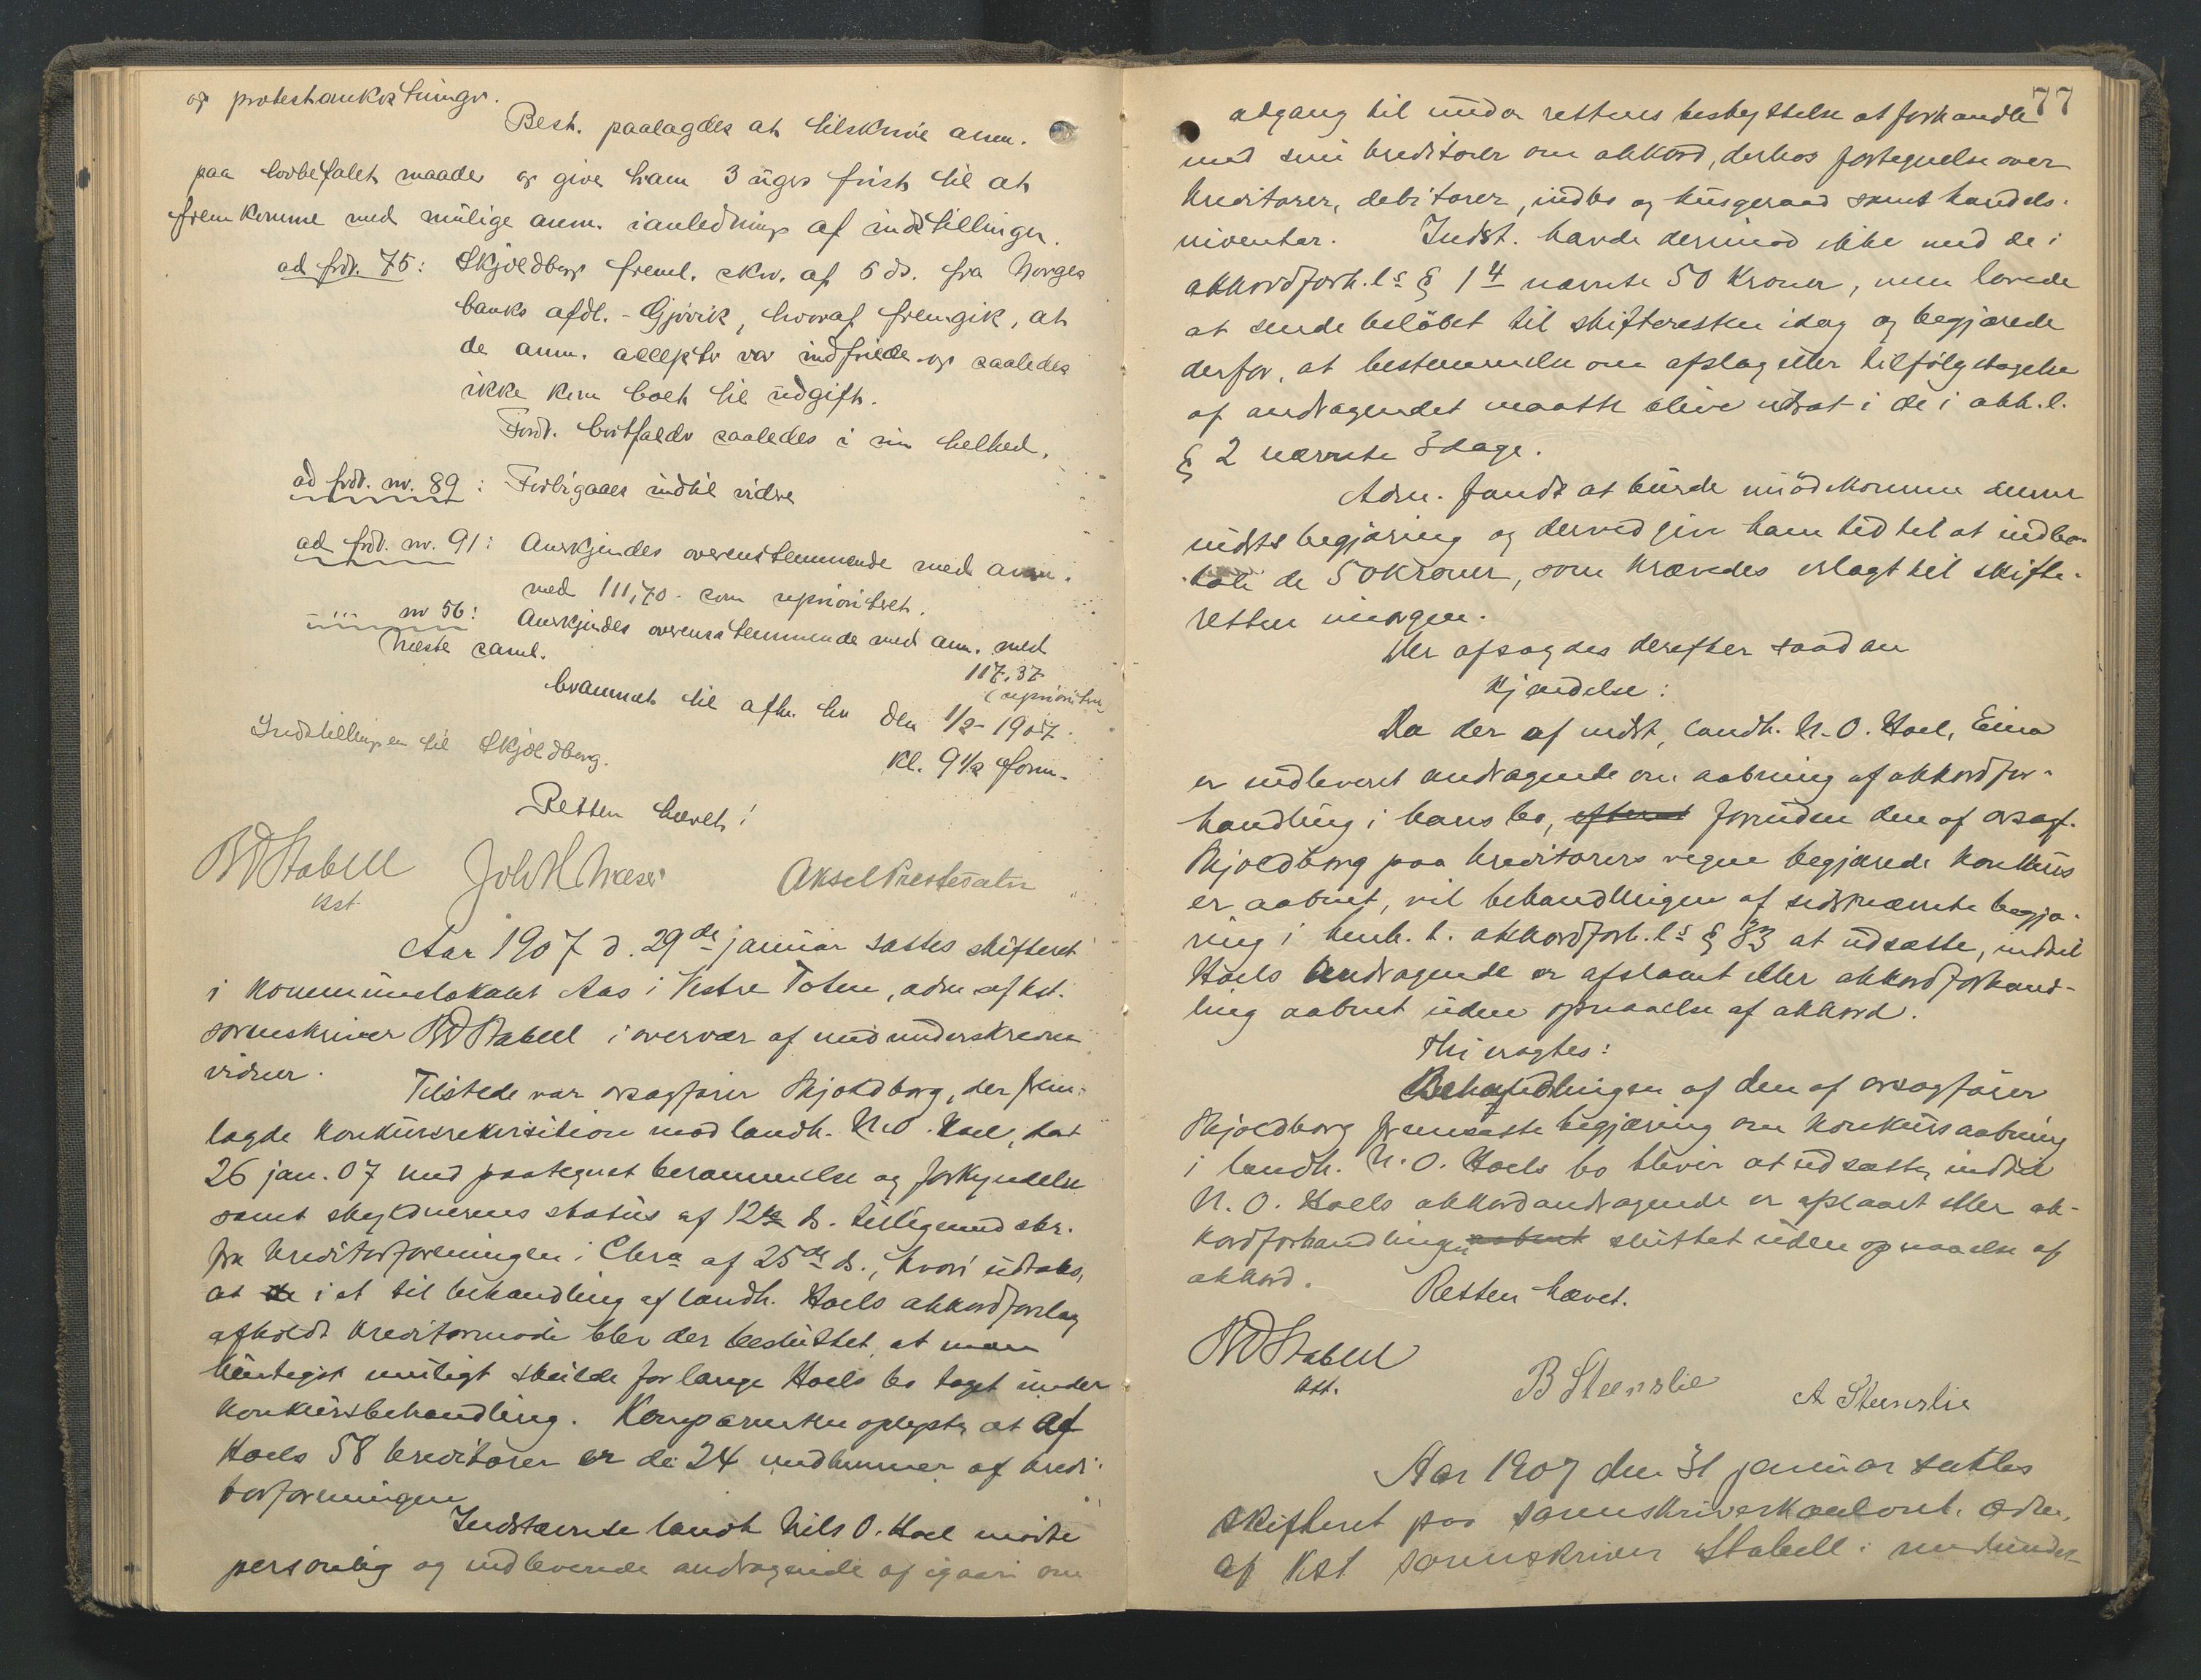 og protestomkostninger.
Best. paalagdes at tilskrive anm.
paa lovbefalet maade og give ham 3 ugers frist til at
fremkomme med mulige anm. i anledning af indstillingen.
ad frdr. 75: Skjoldborg freml. skr. af 5 ds. fra Norges
banks afdl. - Gjøvik, hvoraf fremgik, at
de anm. accepter var indfriede og saaledes
ikke kom boet til udgift.
Fordr. bortfalder saaledes i sin helhed.
ad frdr. nr. 89: Forbigaaes indtil videre
ad frdr. nr. 91: Anerkjendes overensstemmende med anm.
med 111,70. som uprioritert.
nr 56: Anerkjendes overensstemmende med anm. med
117,37
Næste saml. (uprioritert
berammet til afh. her den 1/2 - 1907.
Indstillingen til Skjoldborg.
kl. 9 1/2 form.
Retten hævet!
BD Stabell
kst.
Aar 1907 d. 29de januar sattes skifteret
i kommunelokalet Aas i Vestre Toten, adm. af kst.
sorenskriver BD Stabell i overvær af medunderskrevne
vidner.
Tilstede var orsagfører Skjoldborg, der frem-
lagde konkursrekvisition mod landh. N.O. Hoel, dat
26 jan. 07 med paategnet berammelse og forkyndelse
samt skyldnerens status af 12te ds. tilligemed skr.
fra kreditorforeningen i Chra af 25de ds., hvori udtales,
at de i et til behandling af landh. Hoels akkordforslag
afholdt kreditormøde blev der besluttet, at man
hurtigst muligt skulde forlange Hoels bo taget under
konkursbehandling. Komparenten oplyste, at af
Hoels 58 kreditorer er de 24 medlemmer af kredi-
torforeningen
Indstævnte landh Nils O. Hoel mødte
personlig og indleverede andragende af igaar om
77
adgang til under rettens beskyttelse at forhandle
med sine kreditorer om akkord, derhos fortegnelse over
kreditorer, debitorer, indbo og husgeraad samt handels-
inventar. Indst. havde derimod ikke med de i
akkordforh. ls § 1 4 nævnte 50 kroner, men lovede
at sende beløbet til skifteretten idag og begjærede
derfor, at bestemmelse om afslag eller tilfølgetagelse
af andragendet maatte blive udsat i de i akk. l.
§ 2 nævnte 3 dage.
Adm. fandt at burde imødekomme denne
indsts begjæring og derved give ham tid til at indbe-
tale de 50 kroner, som krævedes erlagt til skifte-
retten imorgen.
Der afsagdes derefter saadan
Kjendelse:
Da der af indst, landh. N.O. Hoel, Eina
er indleveret andragende om aabning af akkordfor-
handling i hans bo, efterat forinden den af orsagf.
Skjoldborg paa kreditorers vegne begjærede konkurs
er aabnet, vil behandlingen af sidstnævnte begjæ-
ring i henh. t. akkordforh. ls § 33 at udsætte, indtil
Hoels andragende er afslaaet eller akkordforhand-
ling aabnet uden opnaaelse af akkord.
Thi eragtes:
Behandlingen af den af orsagfører
Skjoldborg fremsatte begjæring om konkursaabning
i landh. N.O. Hoels bo bliver at udsætte, indtil
N.O. Hoels akkordandragende er afslaaet eller ak-
kordforhandlingen aabnet sluttet uden opnaaelse af
akkord. Retten hævet.
BD Stabell
kst.
B Steenslie A Steenslie
Aar 1907 den 31 januar sattes
skifteret paa sorenskriverkontoret. adm.
af kst sorenskriver Stabell i medunder-